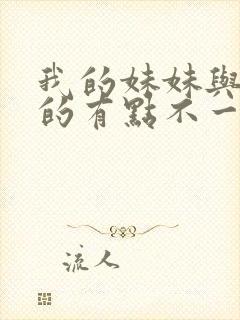 我的妹妹與
的有點不一
流人